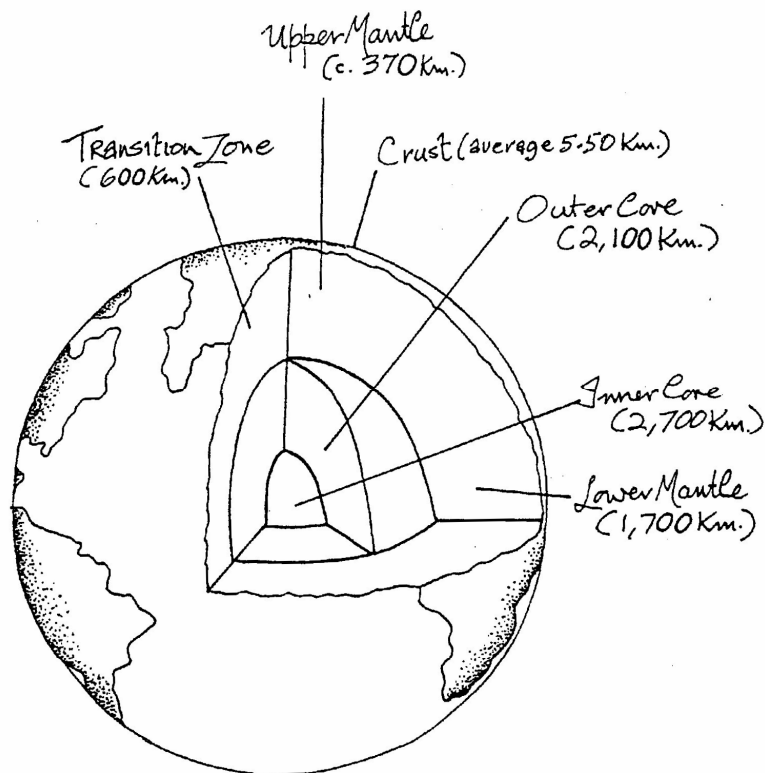 Upper Mantle
(c. 370 Km.)
Transition Zone
(600 Km.)
Crust (average 5-50 Km.)
Outer Core
(2,100 Km.)
Inner Core
(2,700 Km.)
Lower Mantle
(1,700 Km.)